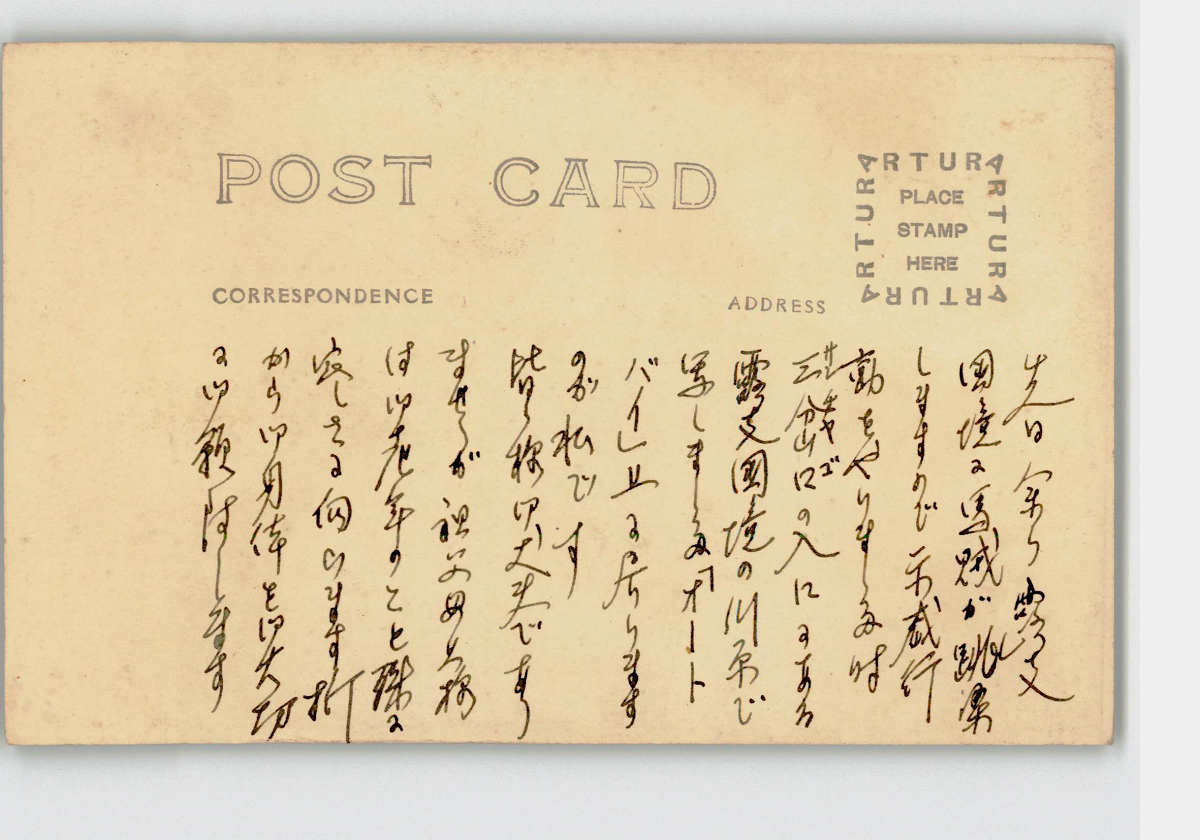 POST CARD
ARTURA
ARTURA
ARTURA
ARTURA
PLACE
STAMP
HERE
CORRESPONDENCE
ADDRESS
先日余り露支
國境に馬賊が跳梁
しますので示威行
動をやりました時
サンチャゴ
三岔口の入口にある
露支國境の川原で
写しました「オート
バイ」上に居ります
のが私です
皆々様御丈夫であり
ませうが祖父母上様
は御老年のこと殊に
伺ひます折
から御身体を御大切
に御願致します